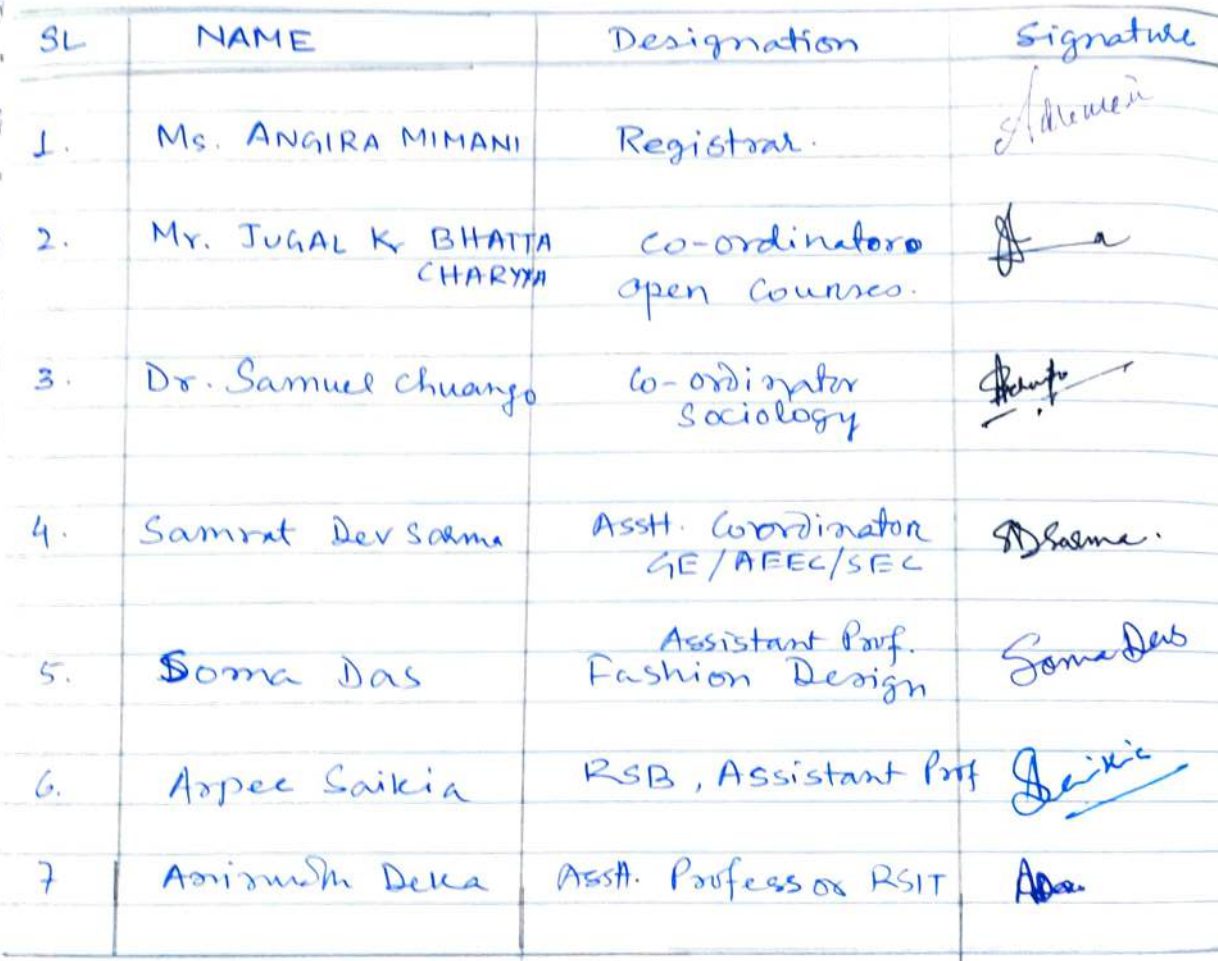 SL NAME Designation Signature
1. Ms. ANGIRA MIMANI Registrar.
2. Mr. JUGAL Kr BHATTA Co-ordinator
CHARYYA open Courses.
3. Dr. Samuel Chuango Co-ordinator
Sociology
4. Samrat Dev Sarma Asstt. Coordinator SDSarma.
GE/AEEC/SEC
Assistant Prof.
5. Soma Das Fashion Design Soma Das
6. Arpee Saikia RSB, Assistant Prof Saikia
7 Anirudh Deka Asstt. Professor RSIT